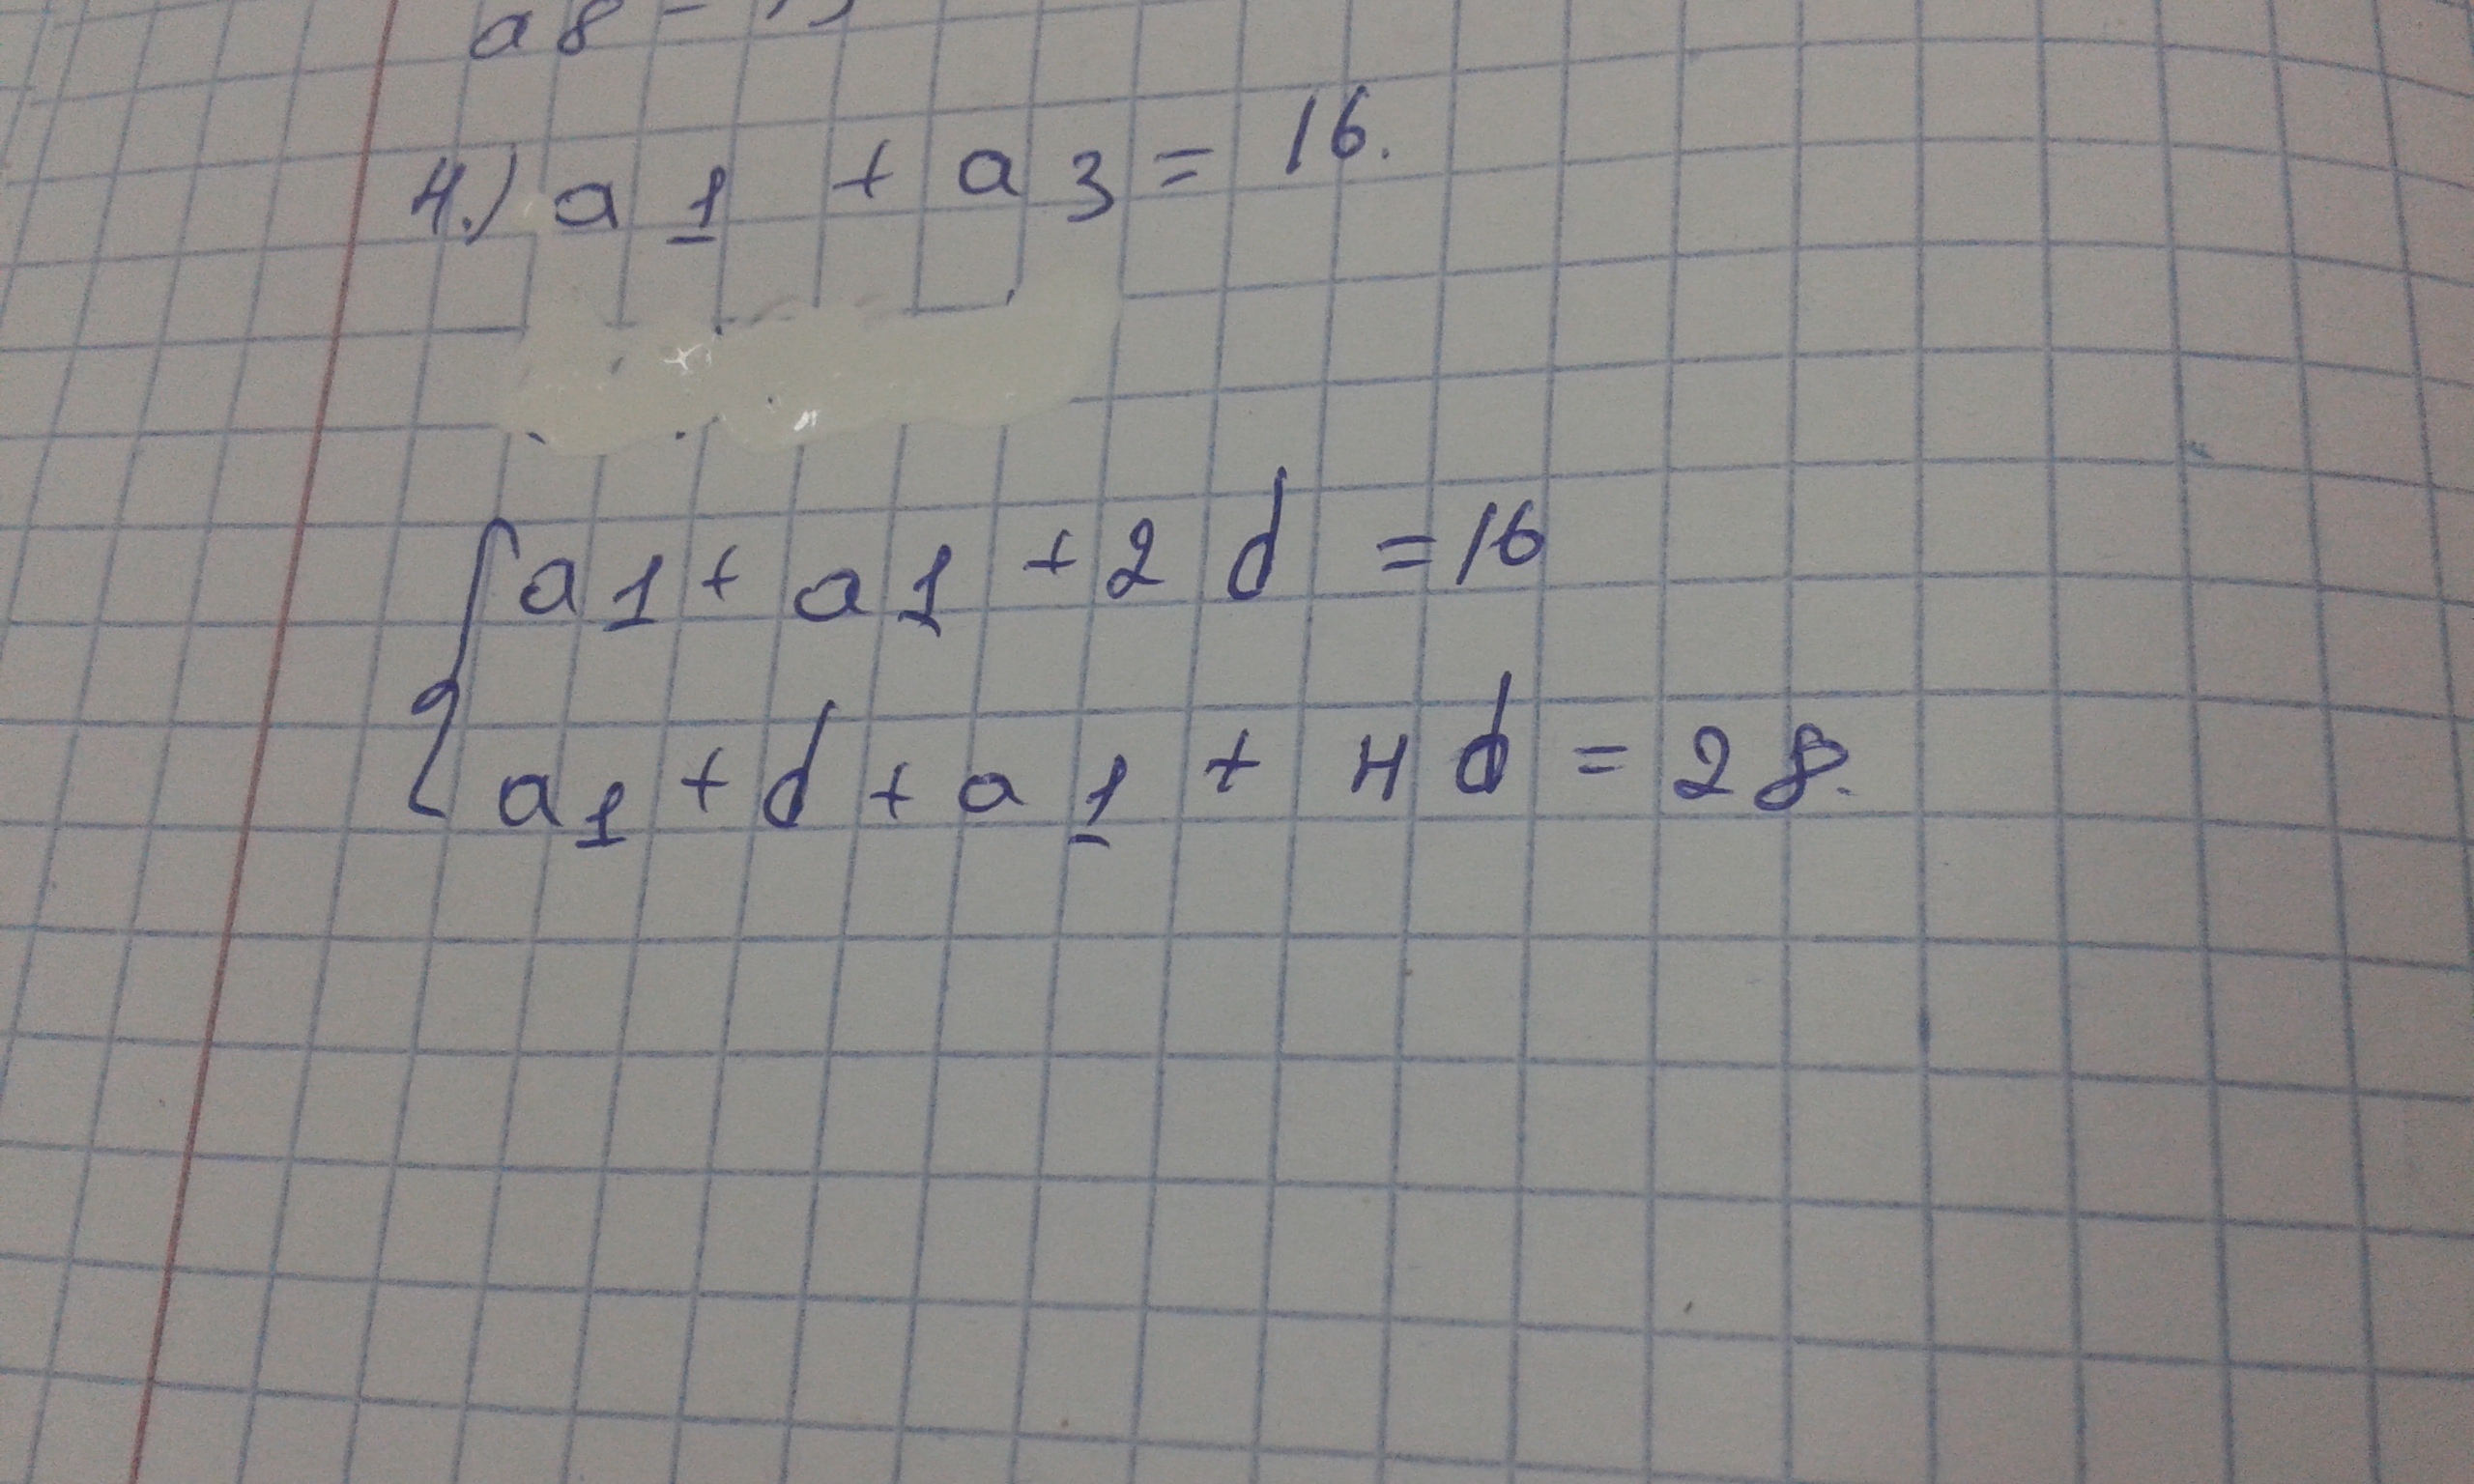 a8 =
4.) a1 + a3 = 16.
a1 + a1 + 2d = 16
a1 + d + a1 + 4d = 28.